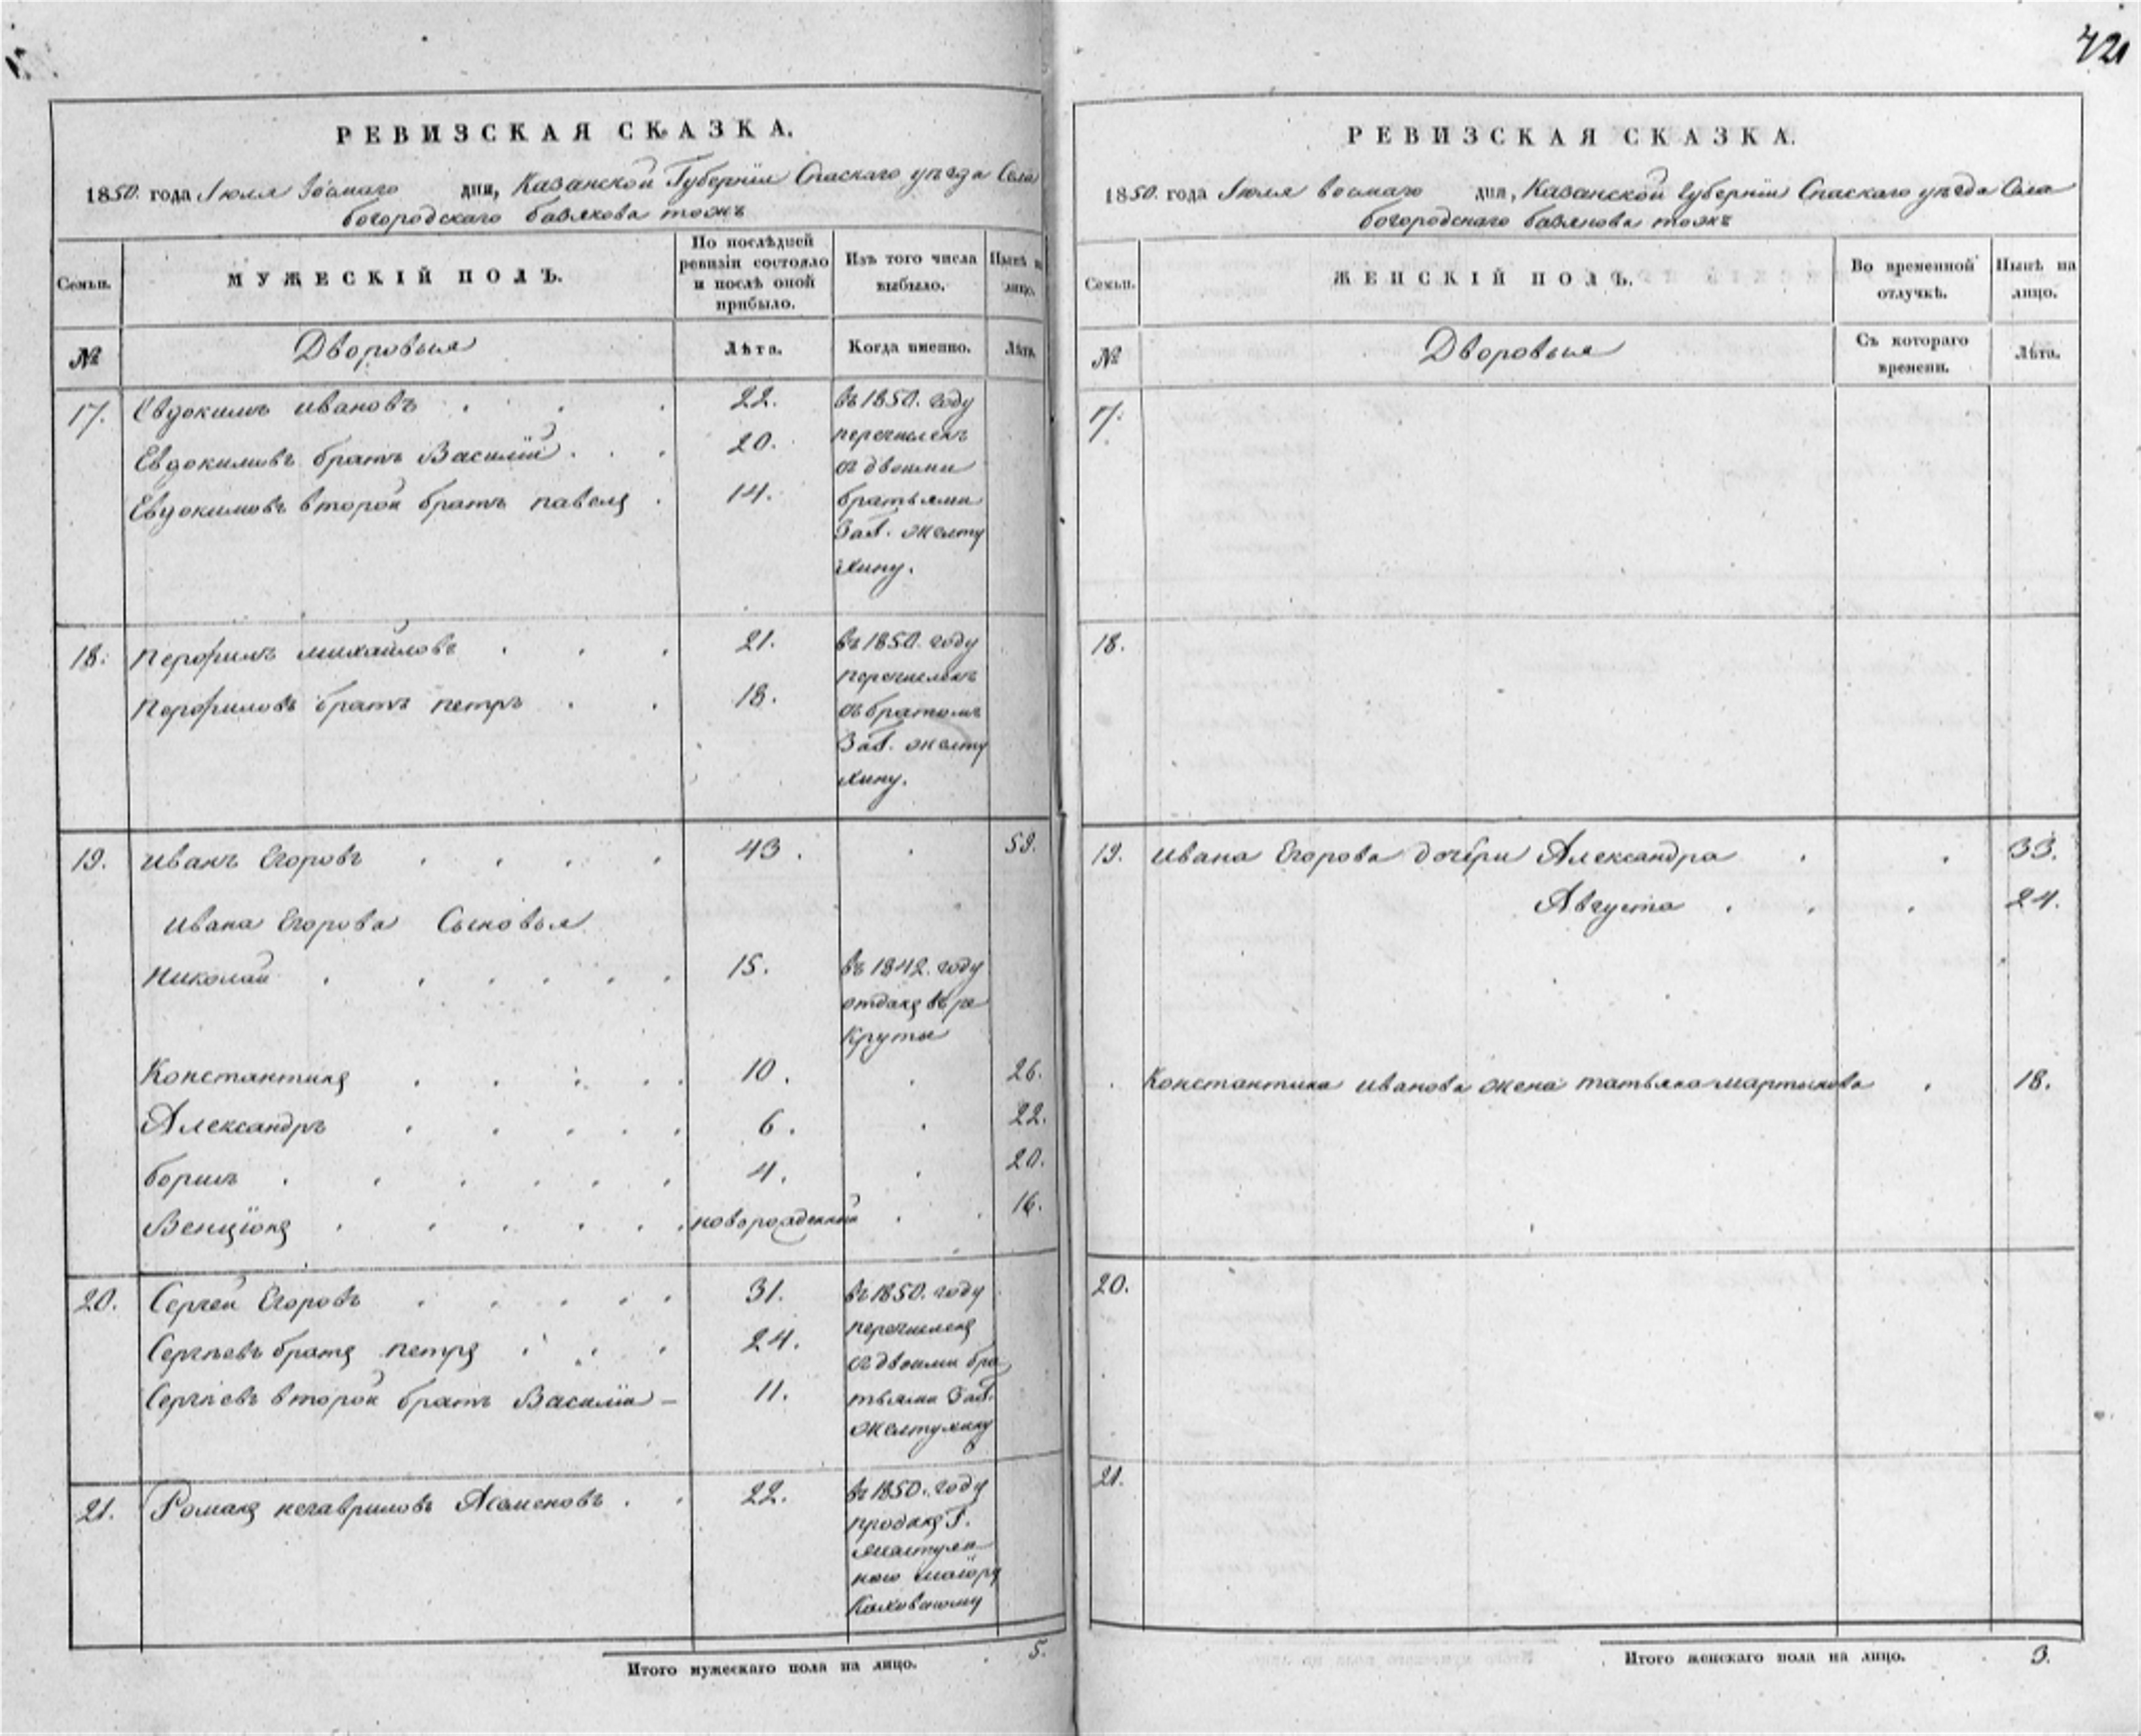 421
РЕВИЗСКАЯ СКАЗКА.
1850. года Июля Восмаго дня, Казанской Губернiи Спаскаго уѣзда Села
богородскаго базякова тожъ
Семьи.
МУЖЕСКІЙ ПОЛЪ.
По послѣдней
ревизіи состояло
и послѣ оной
прибыло.
Изъ того числа
выбыло.
Нынѣ на
лицо.
№
Дворовыя
Лѣта.
Когда именно.
Лѣта.
17. Евдокимъ ивановъ 22. въ 1850. году
перечисленъ
Евдокимовъ братъ Василiй 20.
съ двоими
Евдокимовъ второй братъ павелъ 14. братьями
Заг. желту
хину.
18. Перфилъ михайловъ 21. въ 1850. году
перечисленъ
Перфиловъ братъ петръ 18. съ братомъ
желту
хину.
19. иванъ Егоровъ 43. 59.
ивана Егорова Сыновья
Николай 15. въ 1842. году
отданъ въ ре
круты
Константинъ 10. 26.
Александръ 6. 22.
борисъ 4. 20.
новорожденный 16.
20. Сергей Егоровъ 31. въ 1850. году
перечисленъ
Сергѣевъ братъ петръ 24. съ двоими бра
Сергѣевъ второй братъ Василiй 11. тьями
желтухину
21. Романъ Асаменовъ 22. въ 1850. году
проданъ Г.
маiору
РЕВИЗСКАЯ СКАЗКА.
1850. года Июля восмаго дня, Казанской Губернiи Спаскаго уѣзда Села
богородскаго базякова тожъ
Семьи.
ЖЕНСКІЙ ПОЛЪ.
Во временной
отлучкѣ.
Нынѣ на
лицо.
№
Дворовыя
Съ котораго
времени.
Лѣта.
17.
18.
19. ивана Егорова дочери Александра 33.
Августа 24.
Константина иванова жена татьяна мартынова 18.
20.
21.
Итого мужескаго пола на лицо. 5.
Итого женскаго пола на лицо. 3.